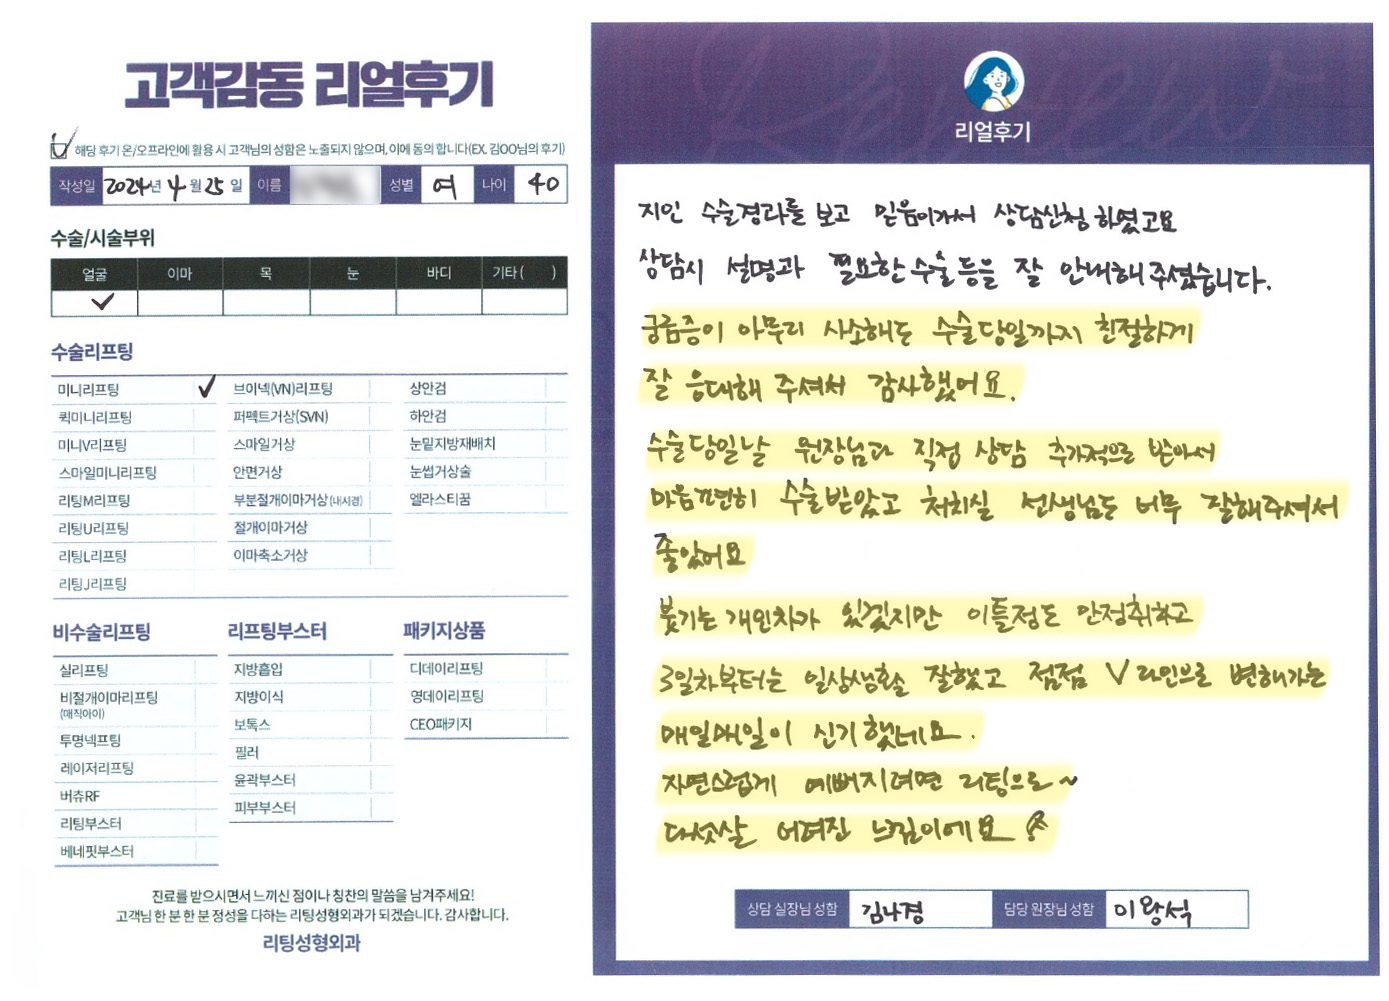 고객감동 리얼후기
해당 후기 온/오프라인에 활용 시 고객님의 성함은 노출되지 않으며, 이에 동의 합니다(EX. 김OO님의 후기)
작성일 2024년 4월 25일 이름 성별 여 나이 40
수술/시술부위
얼굴 이마 목 눈 바디 기타( )
수술리프팅
미니리프팅 브이넥(VN)리프팅 상안검
퀵미니리프팅 퍼펙트거상(SVN) 하안검
미니V리프팅 스마일거상 눈밑지방재배치
스마일미니리프팅 안면거상 눈썹거상술
리팅M리프팅 부분절개이마거상(내시경) 엘라스티꿈
리팅U리프팅 절개이마거상
리팅L리프팅 이마축소거상
리팅J리프팅
비수술리프팅 리프팅부스터 패키지상품
실리프팅 지방흡입 디데이리프팅
비절개이마리프팅 지방이식 영데이리프팅
(매직아이) 보톡스 CEO패키지
투명넥프팅 필러
레이저리프팅 윤곽부스터
버츄RF 피부부스터
리팅부스터
베네핏부스터
진료를 받으시면서 느끼신 점이나 칭찬의 말씀을 남겨주세요!
고객님 한 분 한 분 정성을 다하는 리팅성형외과가 되겠습니다. 감사합니다.
리팅성형외과
리얼후기
지인 수술경과를 보고 믿음이가서 상담신청 하였고요
상담시 설명과 필요한 수술등을 잘 안내해 주셨습니다.
궁금증이 아무리 사소해도 수술당일까지 친절하게
잘 응대해 주셔서 감사했어요.
수술당일날 원장님과 직접 상담 추가적으로 받아서
마음편히 수술받았고 처치실 선생님도 너무 잘해주셔서
좋았어요
붓기는 개인차가 있겠지만 이틀정도 안정취하고
3일차부터는 일상생활 잘했고 점점 V라인으로 변해가는
매일매일이 신기했네요.
자연스럽게 예뻐지려면 리팅으로~
다섯살 어려진 느낌이에요
상담 실장님 성함 김나경 담당 원장님 성함 이왕석